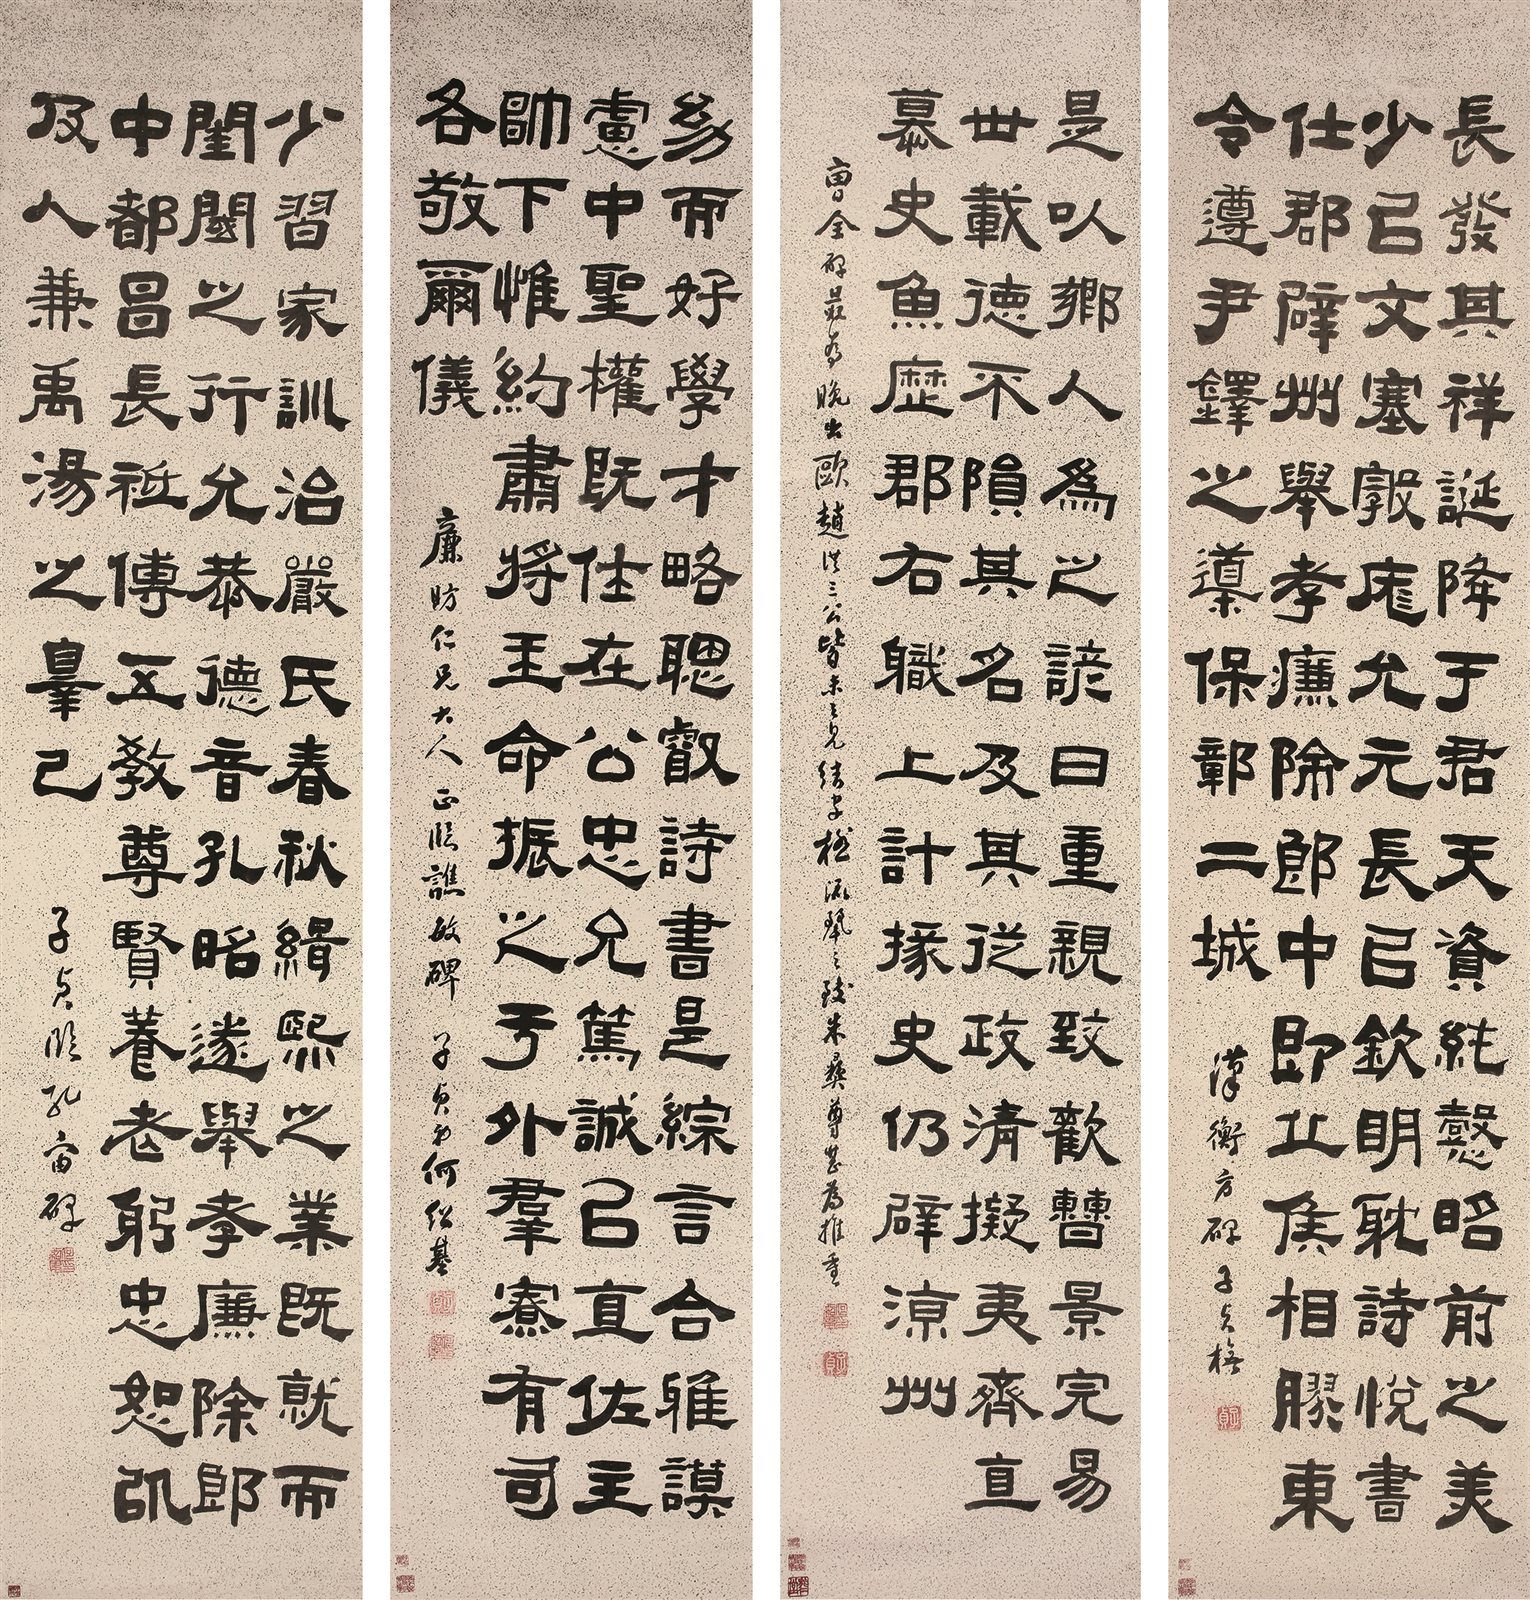 長發其祥誕降于君天資純懿昭前之美
少㠯文塞敦庬允元長㠯欽明耽詩悅書
仕郡辟州舉孝廉除郎中即丘侯相膠東
令遵尹鐸之導保鄣二城
漢衡方碑 子貞橅
是以鄉人為之諺曰重親致歡曹景完易
世載德不隕其名及其從政清擬夷齊直
慕史魚歷郡右職上計掾史仍辟涼州
曹全碑最為晚出歐趙洪三公皆未之見結字極之致朱彝尊甚為推重
幼而好學才略聰叡詩書是綜言合雅謨
慮中聖權既仕在公忠允篤誠㠯直佐主
帥下惟約肅將王命振之于外羣寮有司
各敬爾儀
廉昉仁兄大人正臨譙敏碑 子貞弟何紹基
少習家訓治嚴氏春秋緝熙之業既就而
閨閫之行允恭德音孔昭遂舉孝廉除郎
中都昌長祗傅五教尊賢養老躬忠恕以
及人兼禹湯之辠己
子貞臨孔宙碑